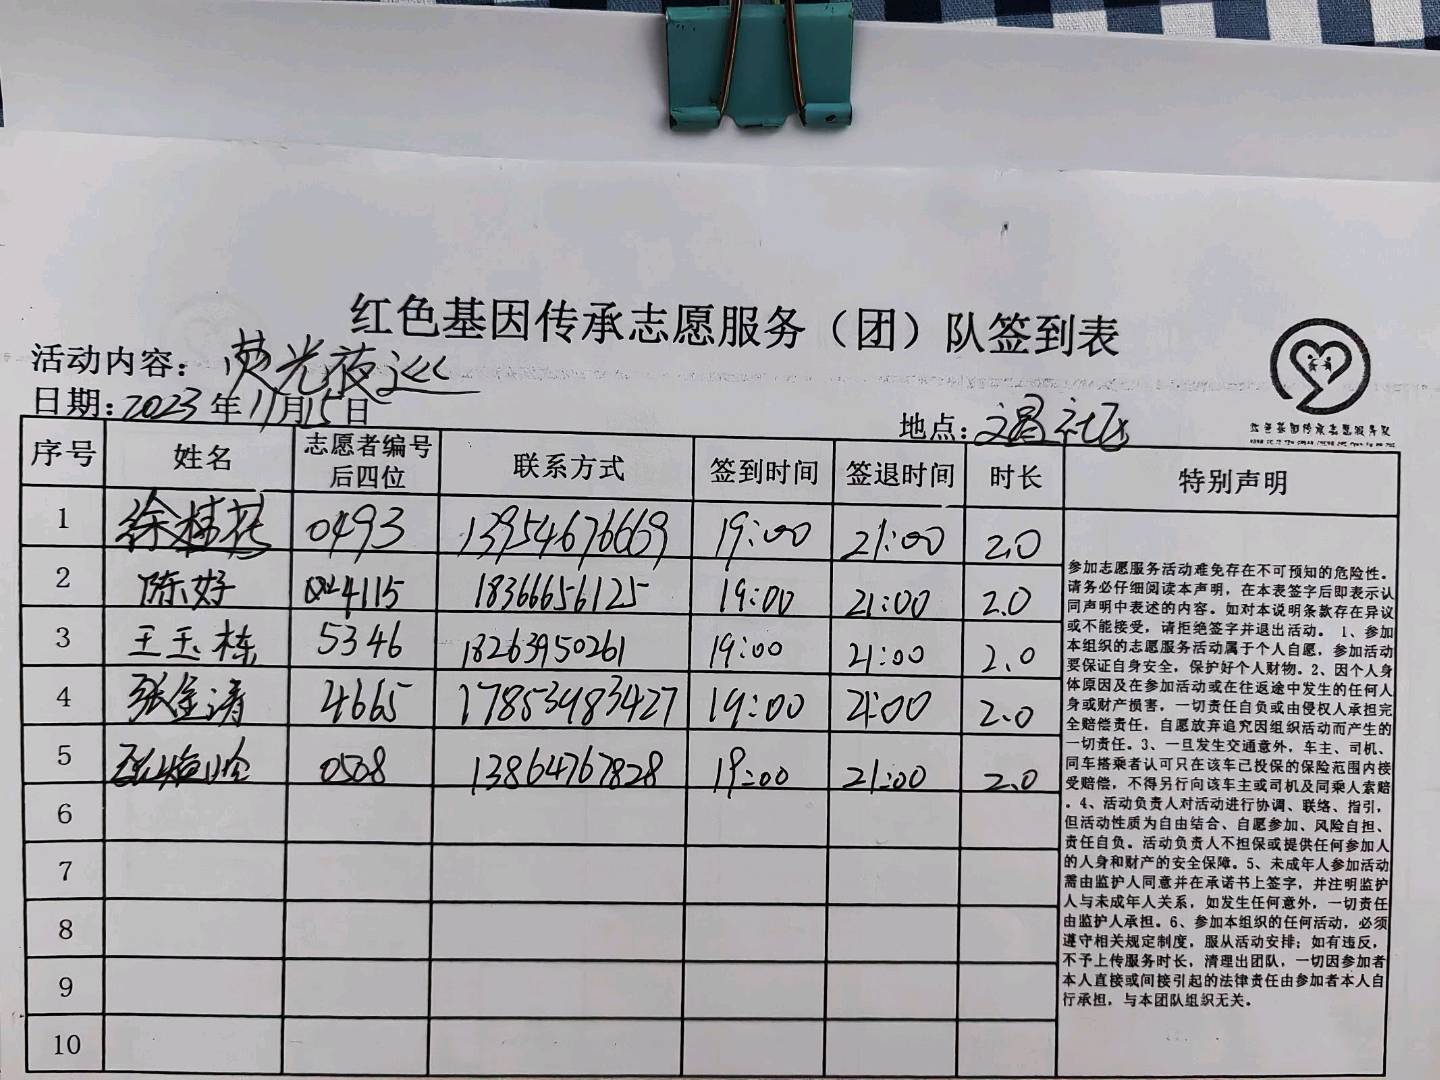 红色基因传承志愿服务（团）队签到表
活动内容：荧光夜巡
日期：2023年11月15日
地点：文昌社区
红色基因传承志愿服务队
序号 姓名 志愿者编号后四位 联系方式 签到时间 签退时间 时长 特别声明
1 徐桂花 0493 13954676669 19:00 21:00 2.0
2 陈好 4115 18366656125 19:00 21:00 2.0
3 王玉栋 5346 18263950261 19:00 21:00 2.0
4 张金涛 4665 17853983427 19:00 21:00 2.0
5 0508 13864767828 19:00 21:00 2.0
6
7
8
9
10
参加志愿服务活动难免存在不可预知的危险性。
请务必仔细阅读本声明，在本表签字后即表示认
同声明中表述的内容。如对本说明条款存在异议
或不能接受，请拒绝签字并退出活动。 1、参加
本组织的志愿服务活动属于个人自愿，参加活动
要保证自身安全，保护好个人财物。2、因个人身
体原因及在参加活动或在往返途中发生的任何人
身或财产损害，一切责任自负或由侵权人承担完
全赔偿责任，自愿放弃追究因组织活动而产生的
一切责任。3、一旦发生交通意外，车主、司机、
同车搭乘者认可只在该车已投保的保险范围内接
受赔偿，不得另行向该车主或司机及同乘人索赔
。4、活动负责人对活动进行协调、联络、指引，
但活动性质为自由结合、自愿参加、风险自担、
责任自负。活动负责人不担保或提供任何参加人
的人身和财产的安全保障。5、未成年人参加活动
需由监护人同意并在承诺书上签字，并注明监护
人与未成年人关系，如发生任何意外，一切责任
由监护人承担。6、参加本组织的任何活动，必须
遵守相关规定制度，服从活动安排；如有违反，
不予上传服务时长，清理出团队，一切因参加者
本人直接或间接引起的法律责任由参加者本人自
行承担，与本团队组织无关。